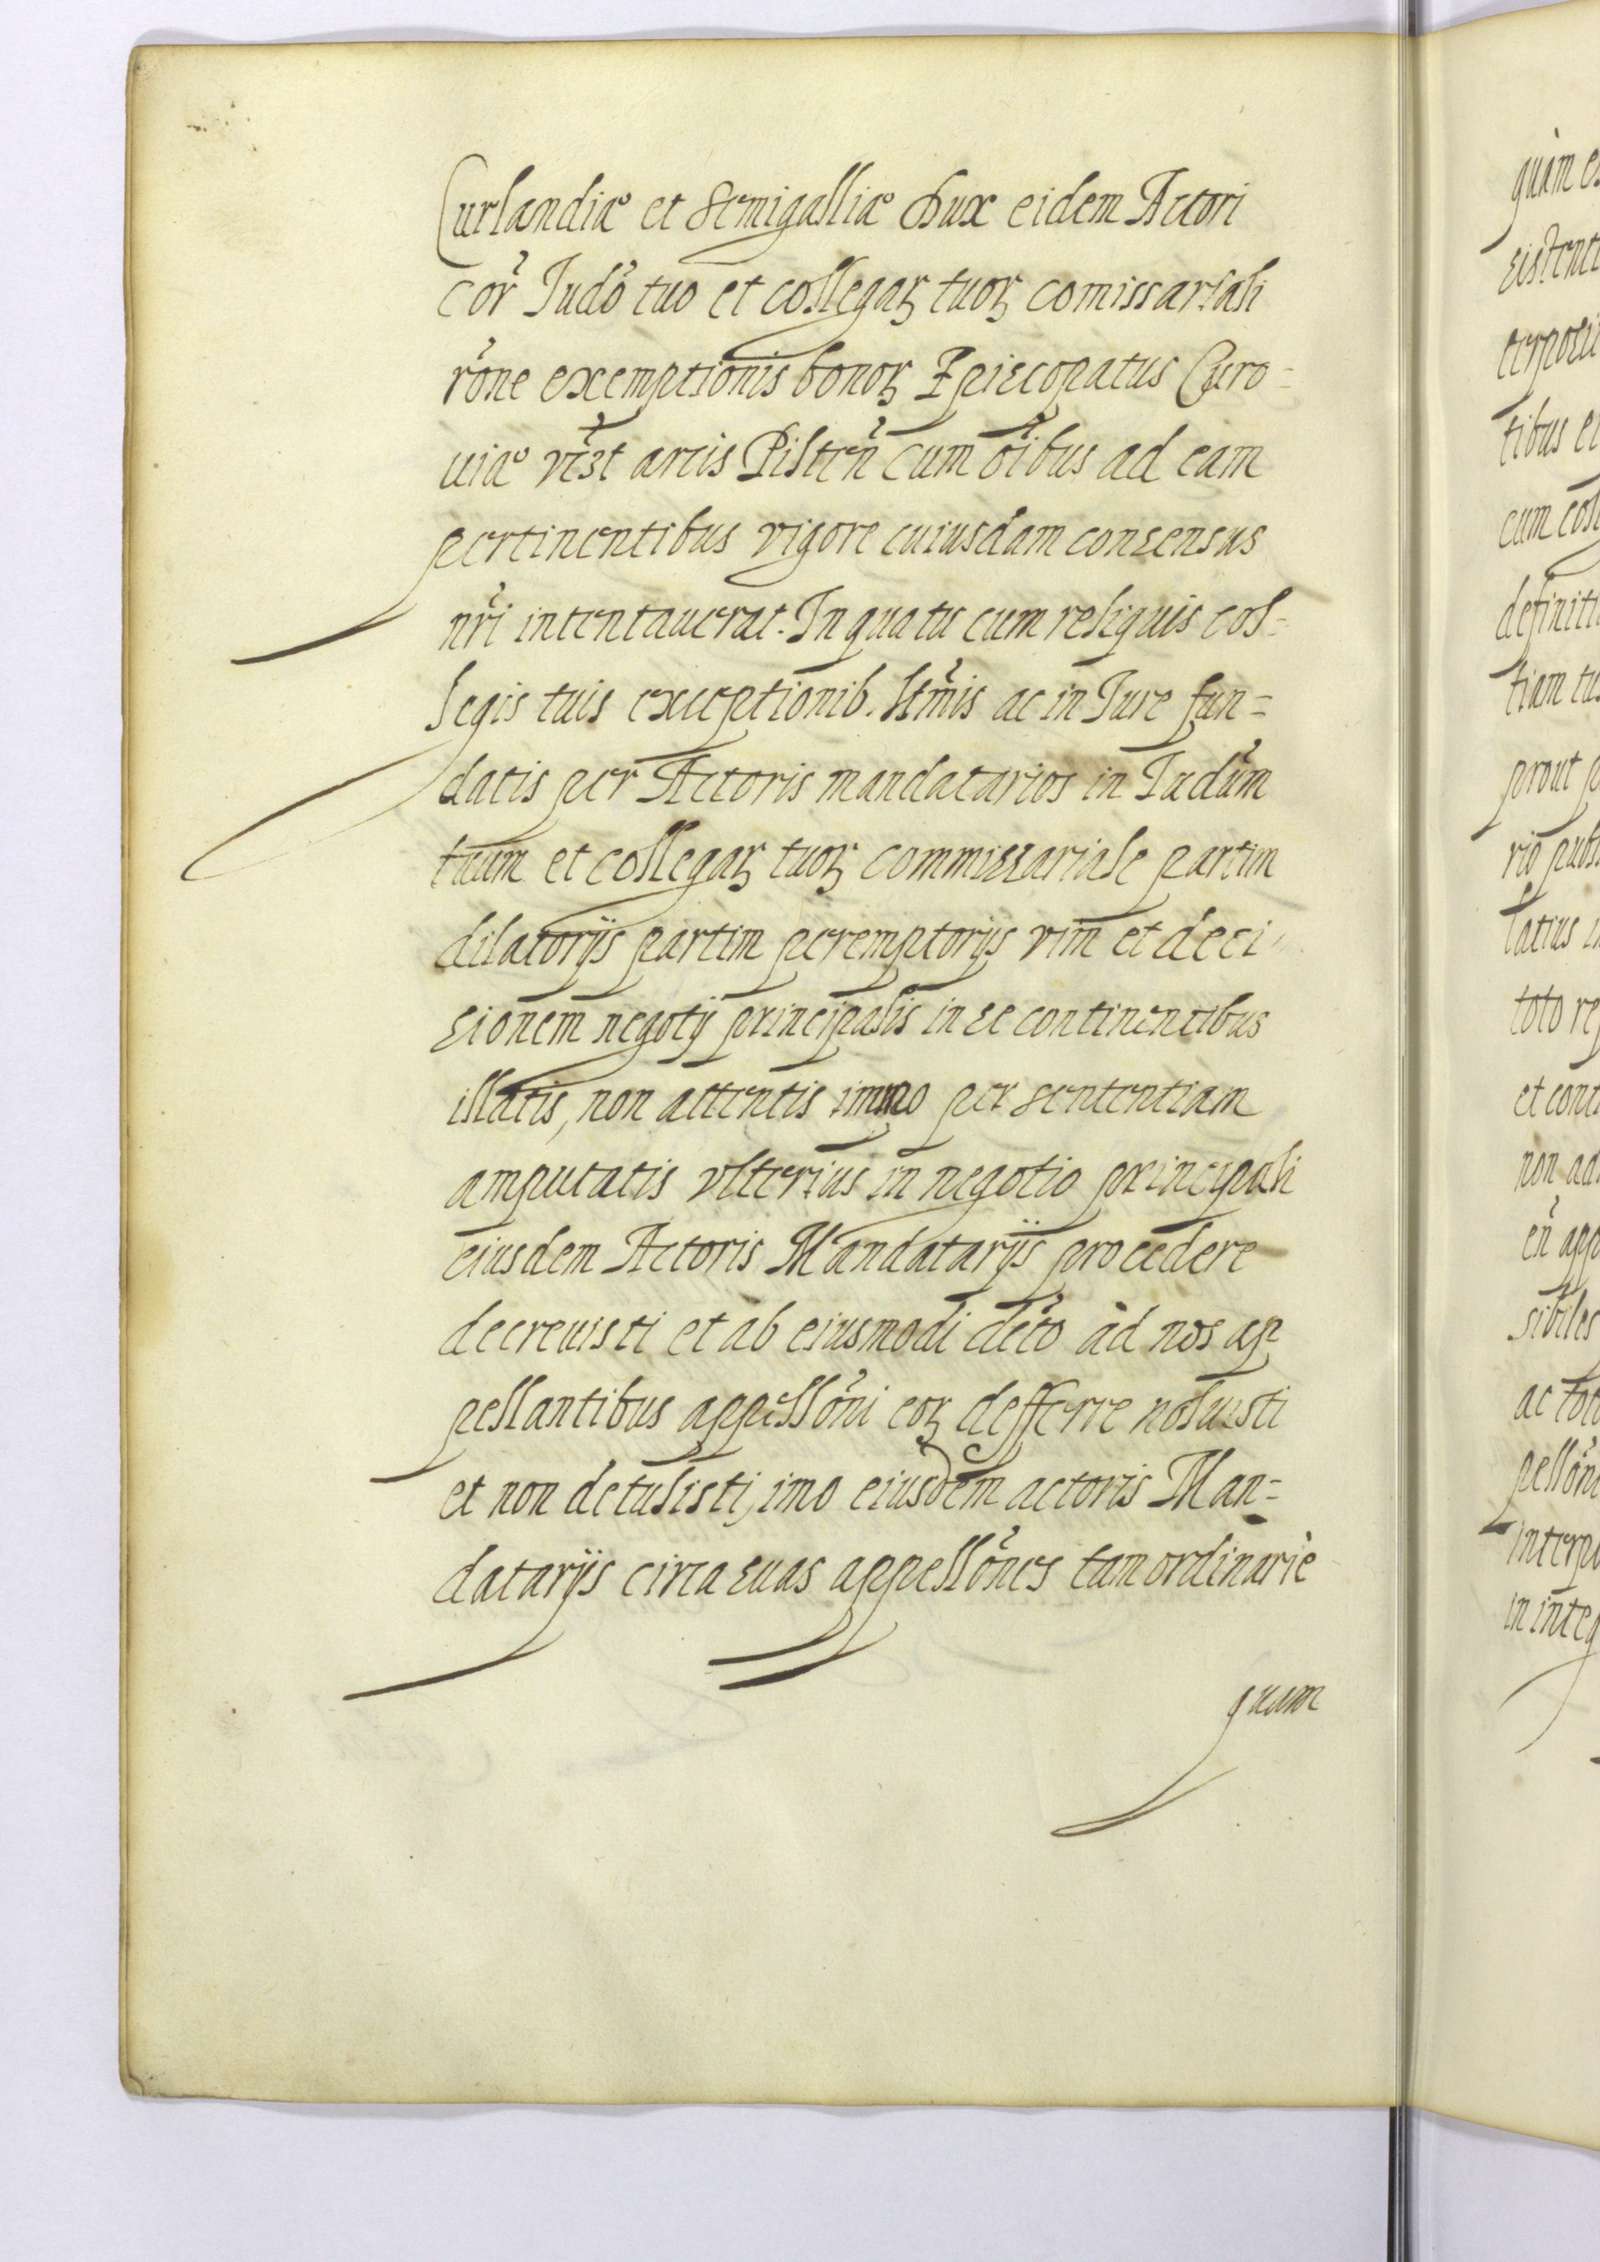 Curlandiæ et Semigalliæ Dux eidem Actori
Cor̃ Judõ tuo et collegaꝝ tuoꝝ comissariali
rõne exemptionis bonoꝝ Episcopatus Curo=
uiæ arcis Pilteñ cum oĩbus ad eam
pertinentibus vigore cuiusdam consensus
nr̃i intentauerat. In qua tu cum reliquis col=
legis tuis exceptionib. ltm̃is ac in Jure fun=
datis per Actoris mandatarios in Judũm
tuum et collegaꝝ tuoꝝ commissariale partim
dilatorijs partim peremptorijs vim et deci
sionem negotij principalis in se continentibus
illatis, non attentis immo per sententiam
amputatis vlterius in negotio principali
eiusdem Actoris Mandatarijs procedere
decreuisti et ab eiusmodi decr̃to ad nos ap
pellantibus appellõni eoꝝ defferre noluisti
et non detulisti, imo eiusdem actoris Man=
datarijs circa suas appellões tam ordinariè
quam
quàm
cum
tiam
prout
toto
et
non
eñ
sibiles
ac